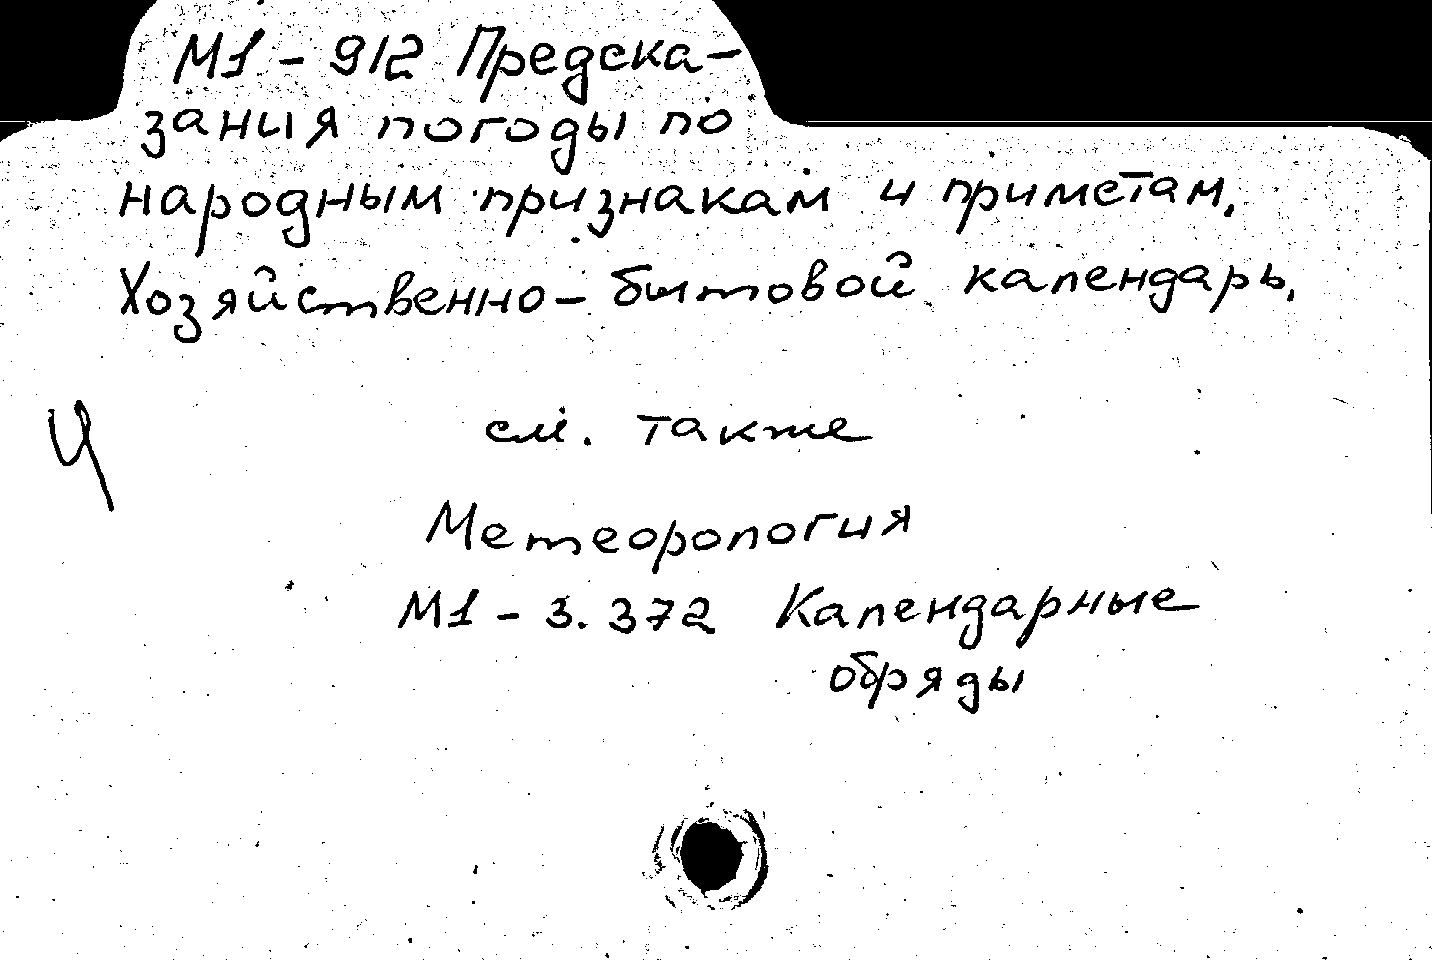 М1 - 912 Предска-
зания погоды по
народным признакам и приметам.
Хозяйственно-бытовой календарь.
см. также
Ч
Метеорология
М1 - 3. 372 Календарные
обряды